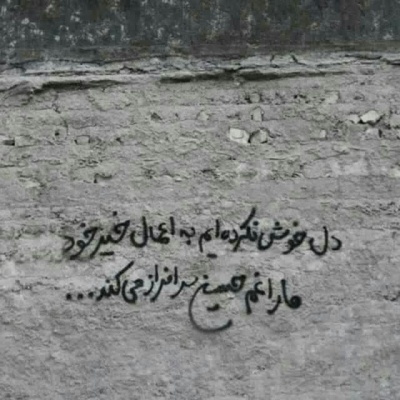 دل خوش نکرده‌ایم به اعمال خیر خود
ما را غم حسین سرافراز می‌کند...